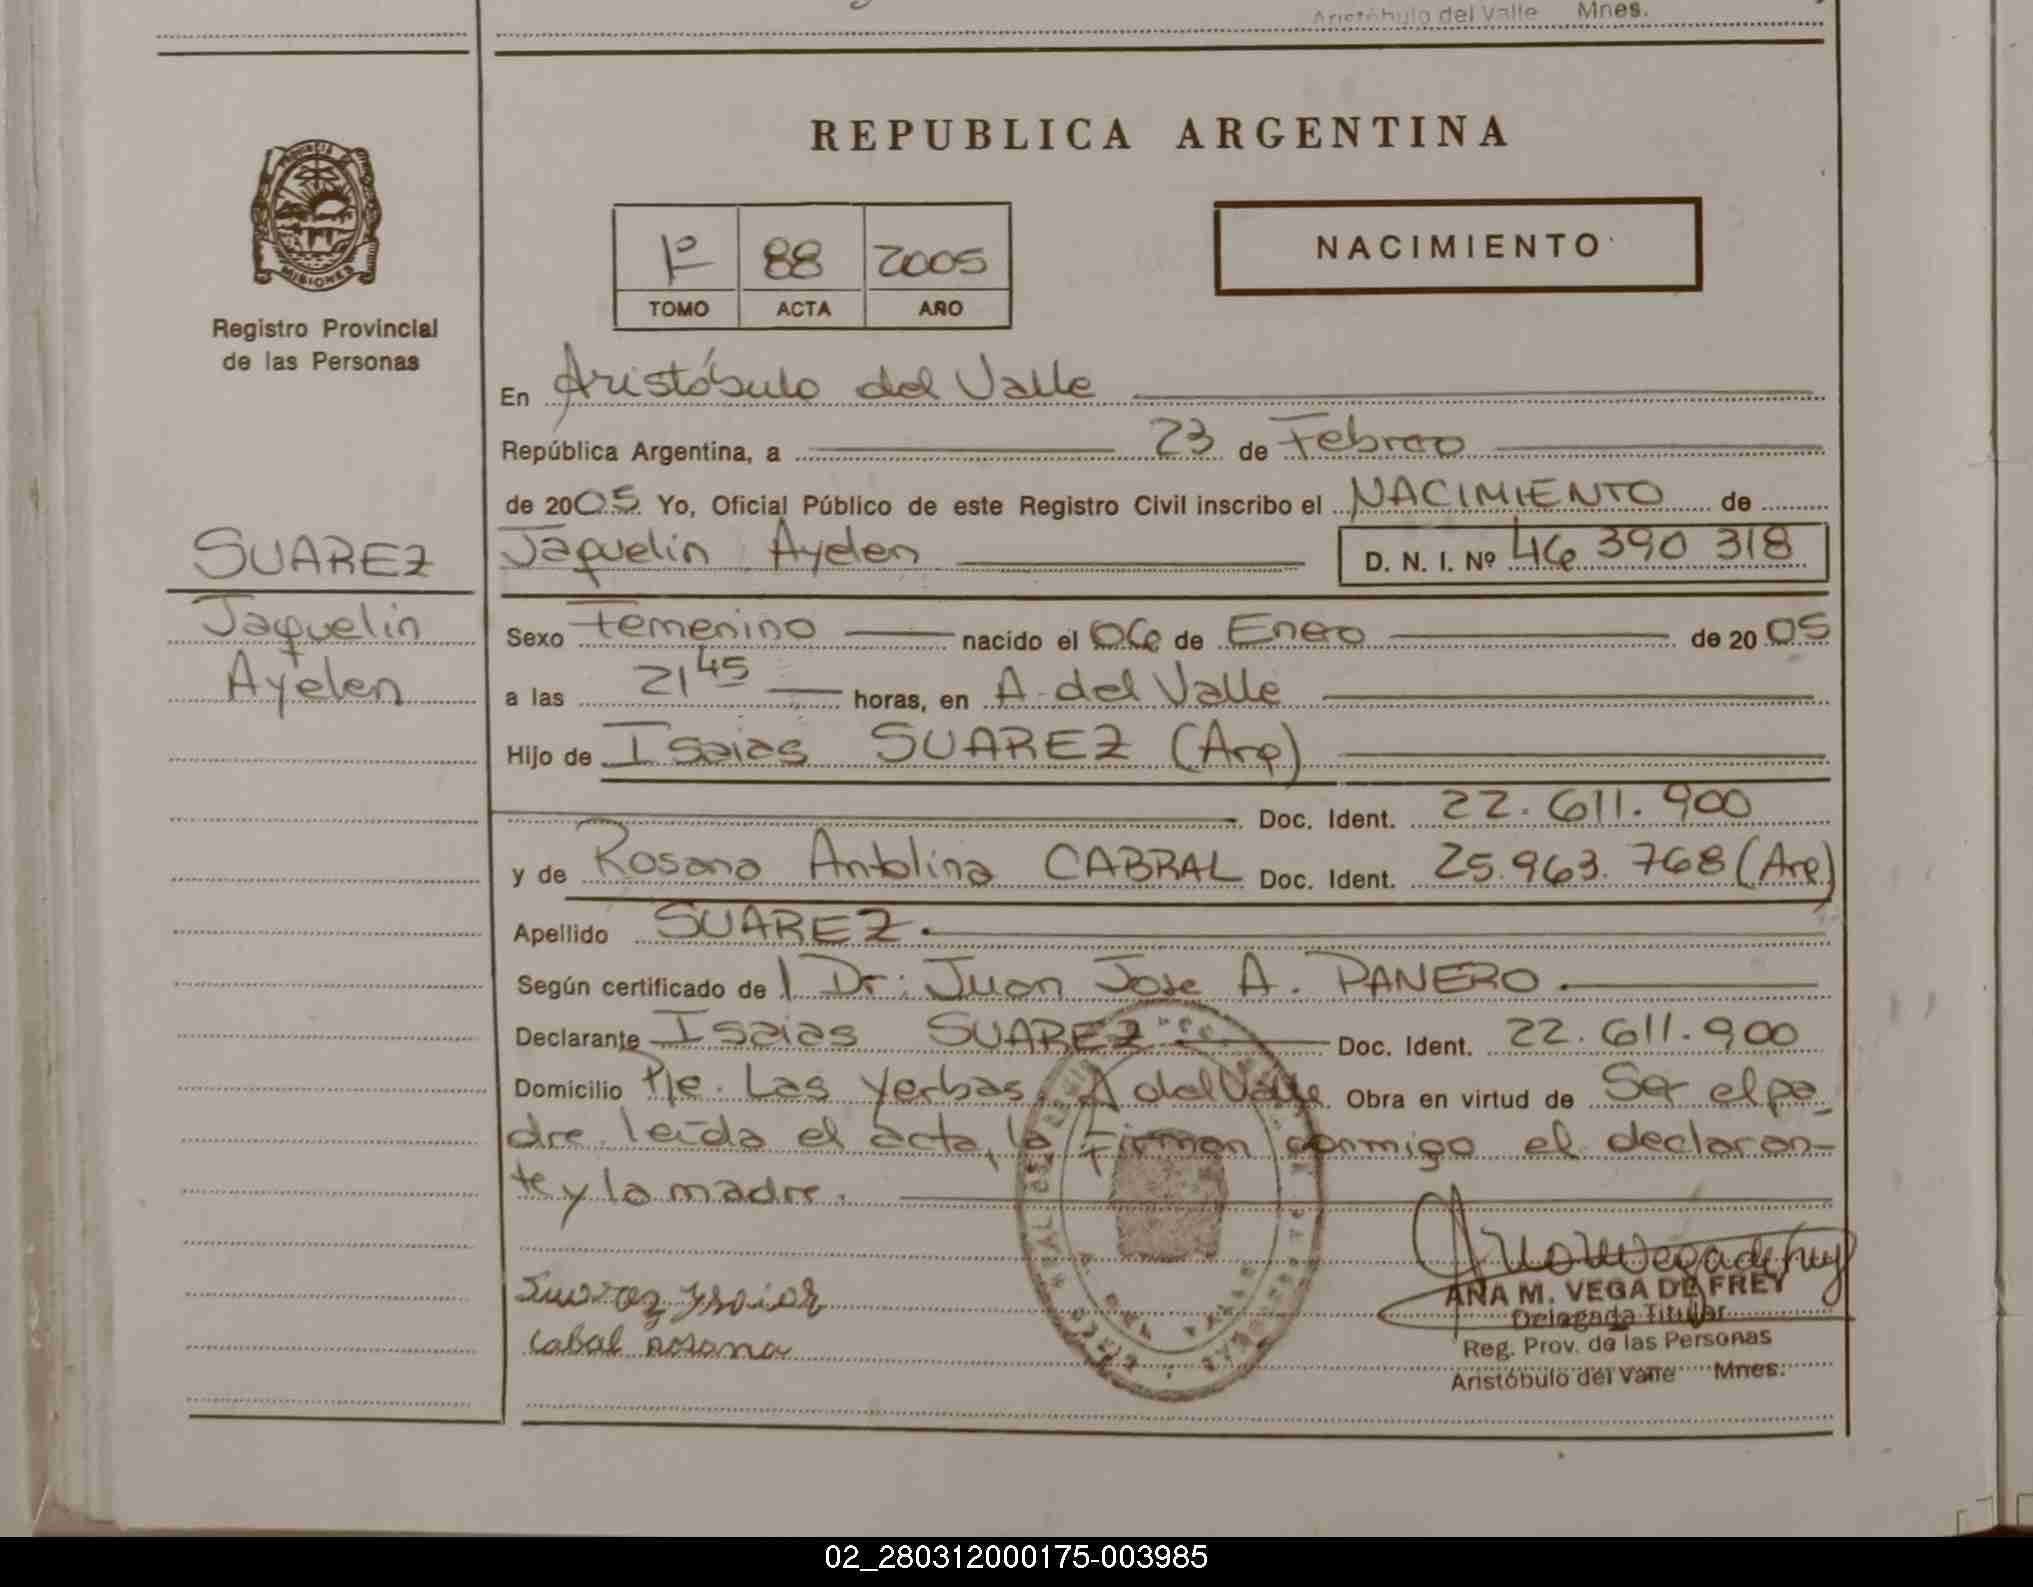 Aristóbulo del Valle Mnes.
REPUBLICA ARGENTINA
PROVINCIA DE
MISIONES
Registro Provincial
de las Personas
1º 88 2005
TOMO ACTA AÑO
NACIMIENTO
En Aristóbulo del Valle
República Argentina, a 23 de Febrero
de 2005 Yo, Oficial Público de este Registro Civil inscribo el NACIMIENTO de
SUAREZ
Jaquelin
Ayelen
Jaquelin Ayelen D. N. I. Nº 46 390 318
Sexo Femenino nacido el 06 de Enero de 2005
a las 21 45 horas, en A. del Valle
Hijo de Isaias SUAREZ (Arg)
Doc. Ident. 22.611.900
y de Rosana Antolina CABRAL Doc. Ident. 25.963.768 (Arg)
Apellido SUAREZ.
Según certificado de l Dr: Juan Jose A. PANERO.
Declarante Isaias SUAREZ Doc. Ident. 22.611.900
Domicilio Pje. Las Yerbas, A del Valle Obra en virtud de Ser el pa-
dre. leída el acta, la Firman conmigo el declaran-
te y la madre.
Suarez Ysaias
Cabal Rosana
ANA M. VEGA DE FREY
Delegada Titular
Reg. Prov. de las Personas
Aristóbulo del Valle Mnes.
02_280312000175-003985